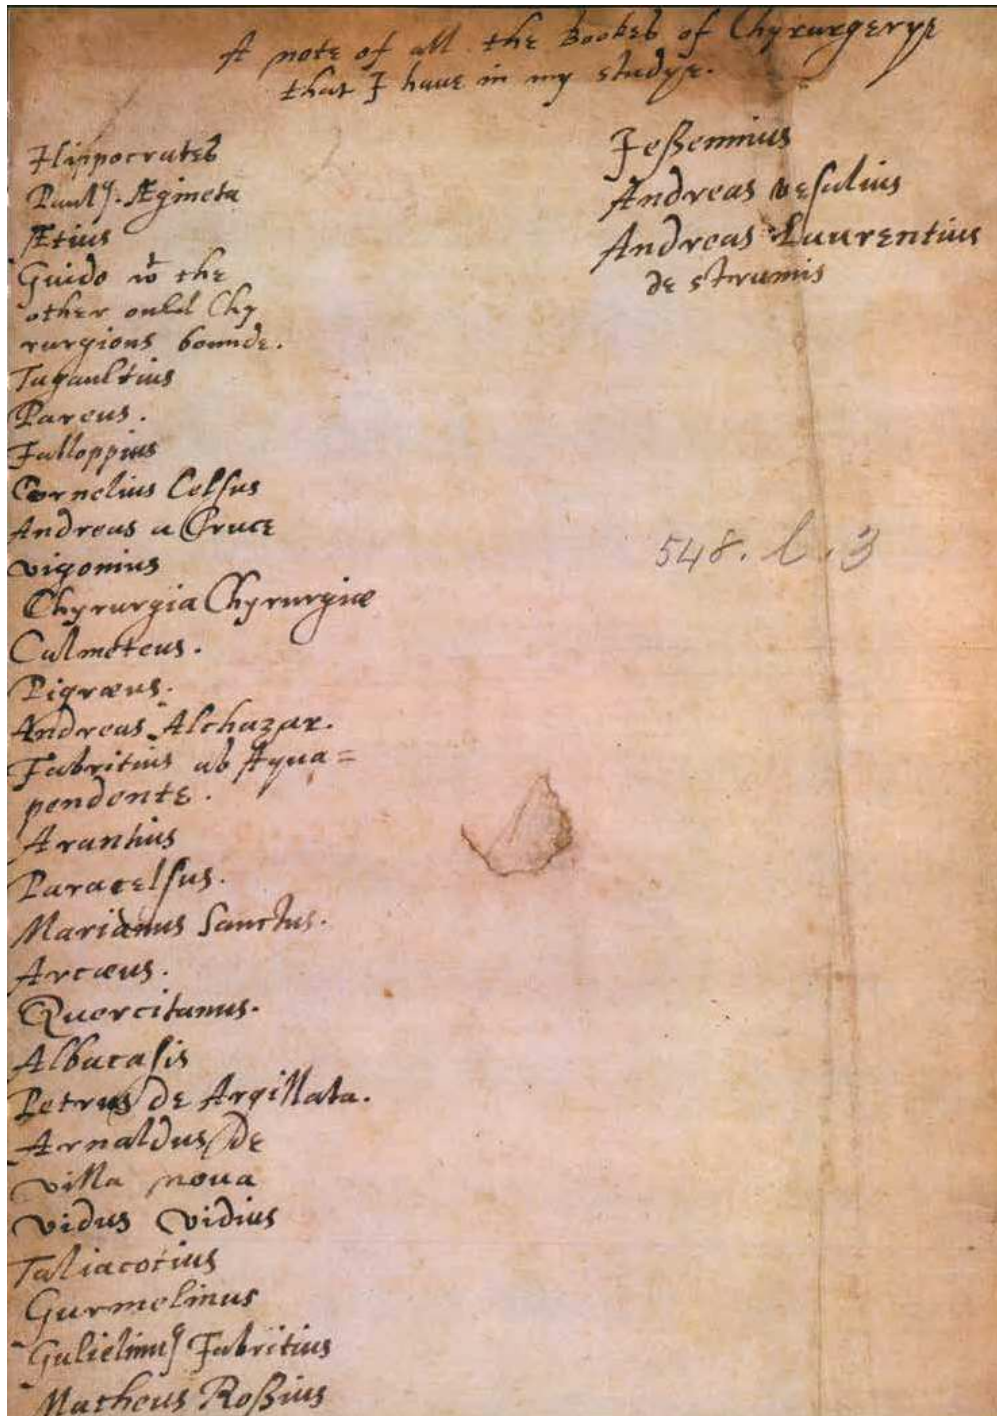 A note of all the bookes of Chyrurgerye
that I haue in my studye.
Hippocrates
Paulꝰ. Ægineta
Ætius
Guido wt the
other ould Chy
rurgions bounde.
Tagaultius
Pareus.
Falloppius
Cornelius Celsus
Andreas a Cruce
vigonius
Chyrurgia Chyrurgiæ
Calmeteus.
Pigræus.
Andreas Alchazar.
Fabritius ab Aqua=
pendente.
Arantius
Paracelsus.
Marianus Sanctus.
Arcæus.
Quercitanus.
Albucasis
Petrus de Argillata.
Arnaldus de
villa noua
vidus vidius
Taliacotius
Gurmelinus
Gulielmꝰ Fabritius
Matheus Roßius
Jeßennius
Andreas vesalius
Andreas Laurentius
de strumis
548. l. 3